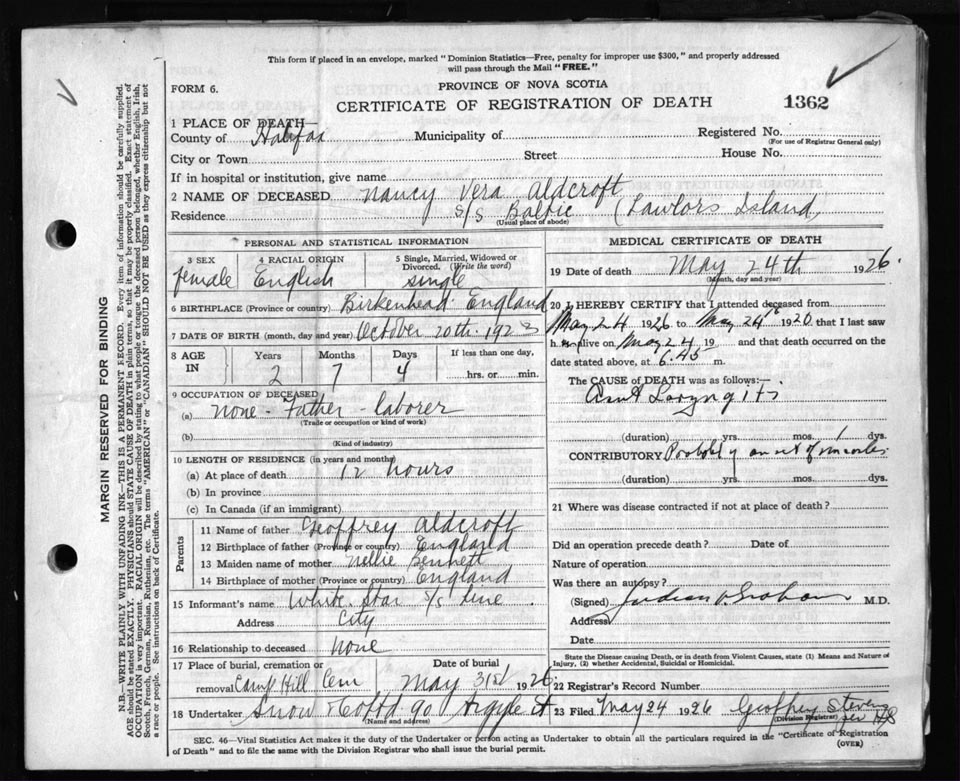 This form if placed in an envelope, marked "Dominion Statistics—Free, penalty for improper use $300," and properly addressed
will pass through the Mail "FREE."
FORM 6.
PROVINCE OF NOVA SCOTIA
CERTIFICATE OF REGISTRATION OF DEATH
1362
1 PLACE OF DEATH
County of Halifax Municipality of Registered No.
(For use of Registrar General only)
City or Town Street House No.
If in hospital or institution, give name
2 NAME OF DECEASED Nancy Vera Aldcroft
Residence S/S Baltic (Lawlors Island)
(Usual place of abode)
PERSONAL AND STATISTICAL INFORMATION
3 SEX 4 RACIAL ORIGIN 5 Single, Married, Widowed or
Divorced. (Write the word)
female English single
6 BIRTHPLACE (Province or country) Birkenhead England
7 DATE OF BIRTH (month, day and year) October 20th 1923
8 AGE IN Years Months Days If less than one day,
2 7 4 hrs. or min.
9 OCCUPATION OF DECEASED
(a) None - Father - laborer
(Trade or occupation or kind of work)
(b)
(Kind of industry)
10 LENGTH OF RESIDENCE (in years and months)
(a) At place of death 12 hours
(b) In province
(c) In Canada (if an immigrant)
Parents
11 Name of father Geoffrey Aldcroft
12 Birthplace of father (Province or country) England
13 Maiden name of mother Nellie Bennett
14 Birthplace of mother (Province or country) England
15 Informant's name White Star S/S Line
Address City
16 Relationship to deceased None
17 Place of burial, cremation or Date of burial
removal Camp Hill Cem May 31st 1926
18 Undertaker Snow & Co Ltd 90 Argyle St
(Name and address)
MEDICAL CERTIFICATE OF DEATH
19 Date of death May 24th 1926
(Month, day and year)
20 I HEREBY CERTIFY that I attended deceased from
May 24 1926 to May 24th 1926 that I last saw
h alive on May 24 19 and that death occurred on the
date stated above, at 6.45 m.
The CAUSE OF DEATH was as follows:
Laryngitis
(duration) yrs. mos. 1 dys.
CONTRIBUTORY Probably onset of measles
(duration) yrs. mos. dys.
21 Where was disease contracted if not at place of death?
Did an operation precede death? Date of
Nature of operation
Was there an autopsy?
(Signed) Judson Graham M.D.
Address
Date
State the Disease causing Death, or in death from Violent Causes, state (1) Means and Nature of
Injury, (2) whether Accidental, Suicidal or Homicidal.
22 Registrar's Record Number
23 Filed May 24 1926 Geoffrey Stevens
(Division Registrar) per
SEC. 46—Vital Statistics Act makes it the duty of the Undertaker or person acting as Undertaker to obtain all the particulars required in the "Certificate of Registration
of Death" and to file the same with the Division Registrar who shall issue the burial permit.
(OVER)
MARGIN RESERVED FOR BINDING
N.B.—WRITE PLAINLY WITH UNFADING INK—THIS IS A PERMANENT RECORD. Every item of information should be carefully supplied.
AGE should be stated EXACTLY. PHYSICIANS should STATE CAUSE OF DEATH in plain terms, so that it may be properly classified. Exact statement of
OCCUPATION is very important. RACIAL ORIGIN will be described by stating to what people or tongue the deceased person belonged, whether English, Irish,
Scotch, French, German, Russian, Ruthenian, etc. The terms "AMERICAN" or "CANADIAN" SHOULD NOT BE USED as they express citizenship but not
a race or people. See instructions on back of Certificate.